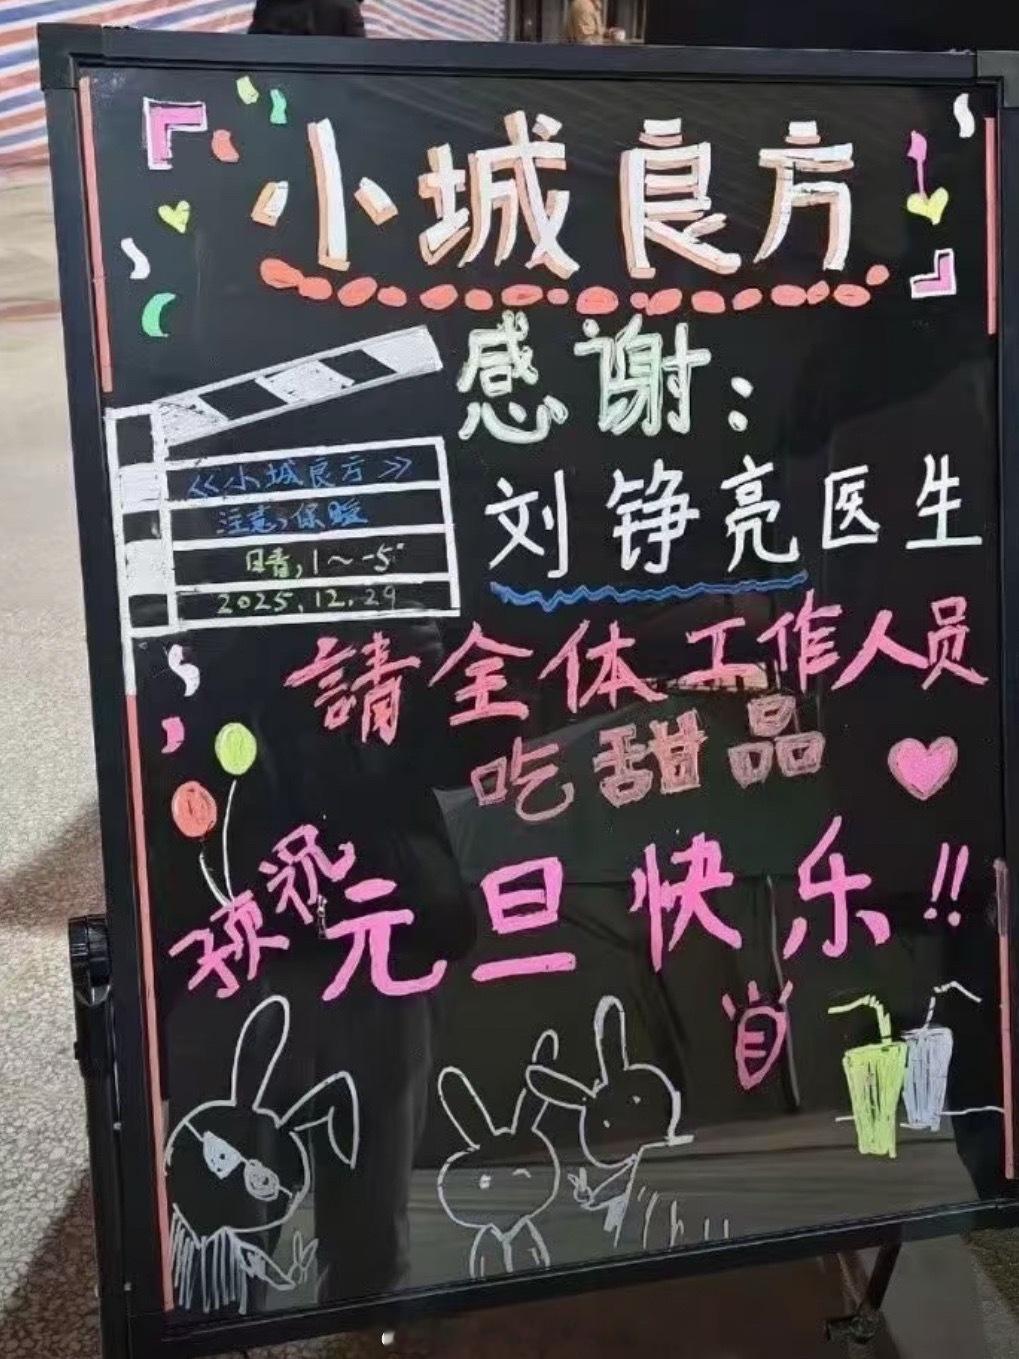 小城良方
感谢：
刘铮亮医生
《小城良方》
注意,保暖
日晴,1～-5°
2025.12.29
請全体工作人员
吃甜品
预祝元旦快乐!!